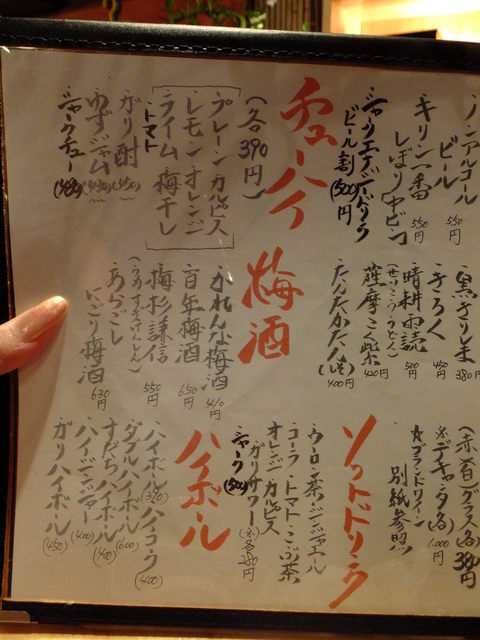 ノンアルコール
ビール 550円
キリン一番
しぼり中ビン 550円
シャークエナジードリンク
ビール割(500)円
チューハイ
(各390円)
プレーン カルピス
レモン オレンジ
ライム 梅干し
トマト
ガリ酎(450)
ゆずジャム(490)
シャークチュー(480)
黒きりしま 380円
きろく 450円
晴耕雨読 500円
(せいこううどく)
薩摩こく紫 420円
たんたかたん(しそ) 400円
梅酒
かれんな梅酒 410円
百年梅酒 650円
梅杉謙信 550円
(うめすぎけんしん)
あらごし
にごり梅酒 630円
(赤・白)グラス(各)380円
※デキャンタ(各)1.000円
☆ブランドワイン
別紙参照
ソフトドリンク
ウーロン茶・ジンジャエール
コーラ・トマト・こぶ茶
オレンジ カルピス
ガリサワー(※各280円)
シャーク(500)
ハイボール
ハイボール(370) ハイコーク(400)
ダブルハイボール(600)
すだちハイボール(400)
ハイジンジャー(400)
ガリハイボール(450)